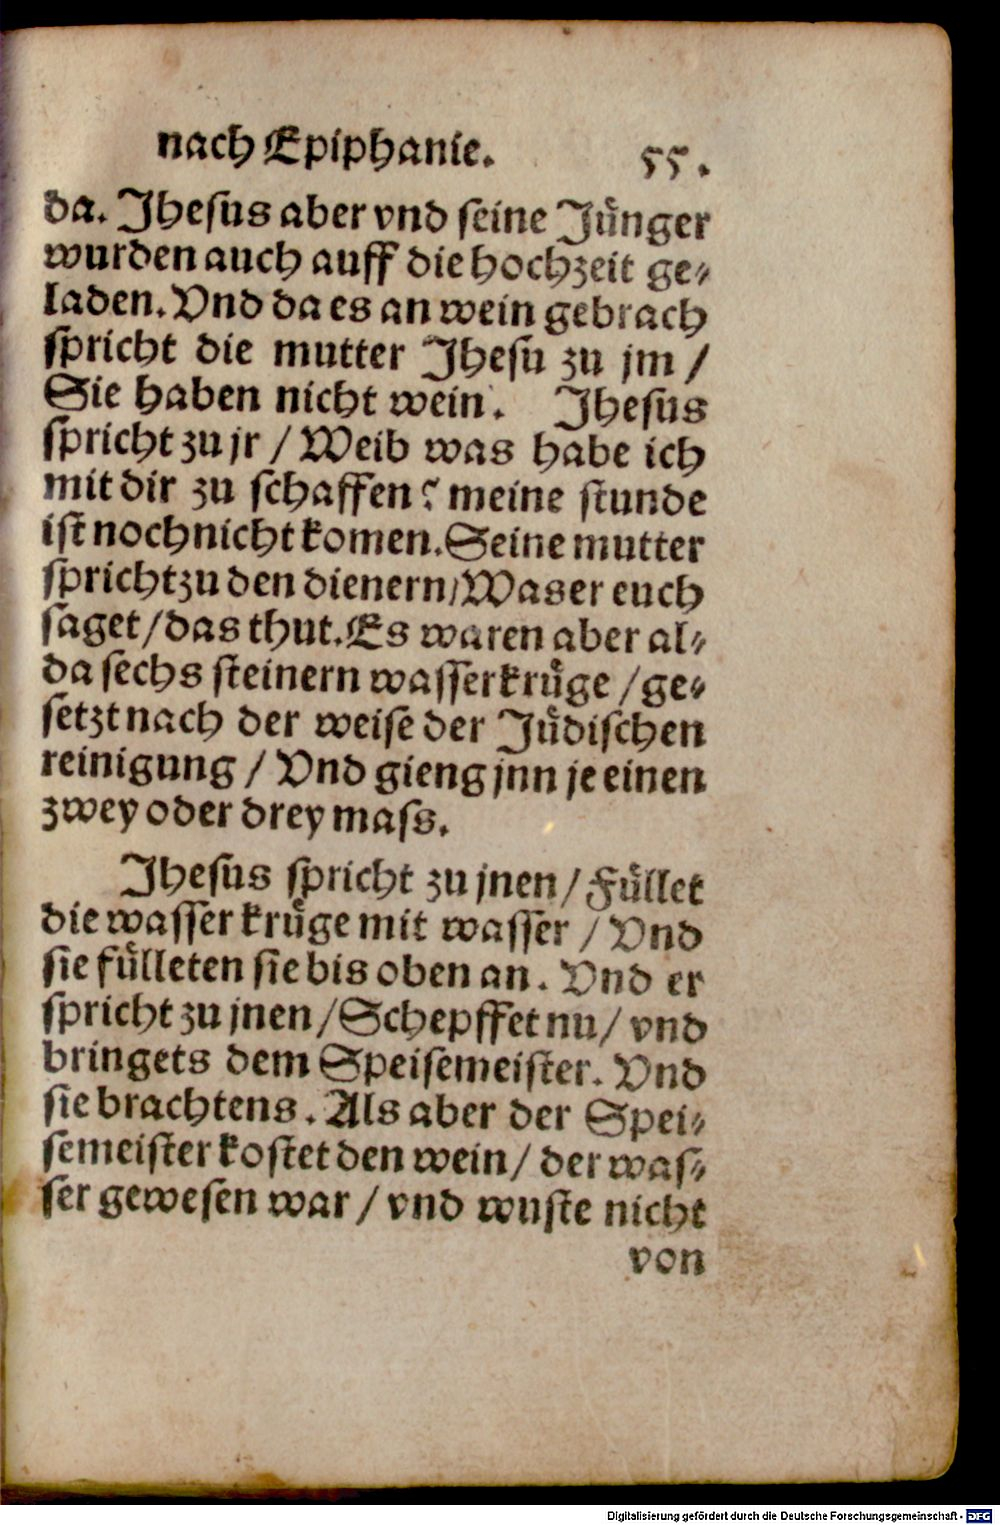 nach Epiphanie. 55.
da. Jhesus aber vnd seine Jünger
wurden auch auff die hochzeit ge⸗
laden. Vnd da es an wein gebrach
spricht die mutter Jhesu zu jm /
Sie haben nicht wein. Jhesus
spricht zu jr / Weib was habe ich
mit dir zu schaffen? meine stunde
ist noch nicht komen. Seine mutter
spricht zu den dienern / Was er euch
saget / das thut. Es waren aber al⸗
da sechs steinern wasserkrüge / ge⸗
setzt nach der weise der Jüdischen
reinigung / Vnd gieng jnn je einen
zwey oder drey mass.
Jhesus spricht zu jnen / Füllet
die wasser krüge mit wasser / Vnd
sie fülleten sie bis oben an. Vnd er
spricht zu jnen / Schepffet nu / vnd
bringets dem Speisemeister. Vnd
sie brachtens. Als aber der Spei⸗
semeister kostet den wein / der was⸗
ser gewesen war / vnd wuste nicht
von
Digitalisierung gefördert durch die Deutsche Forschungsgemeinschaft - DFG